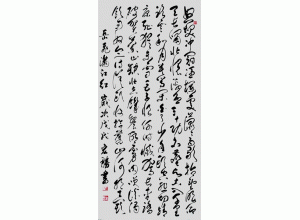 怒发冲冠凭阑处潇潇雨歇抬望眼仰
天长啸壮怀激烈三十功名尘与土八千里
路云和月莫等闲白了少年头空悲切靖
康耻犹未雪臣子恨何时灭驾长车踏
破贺兰山缺壮志饥餐胡虏肉笑谈渴
饮匈奴血待从头收拾旧山河朝天阙
岳飞满江红 岁次戊戌 书